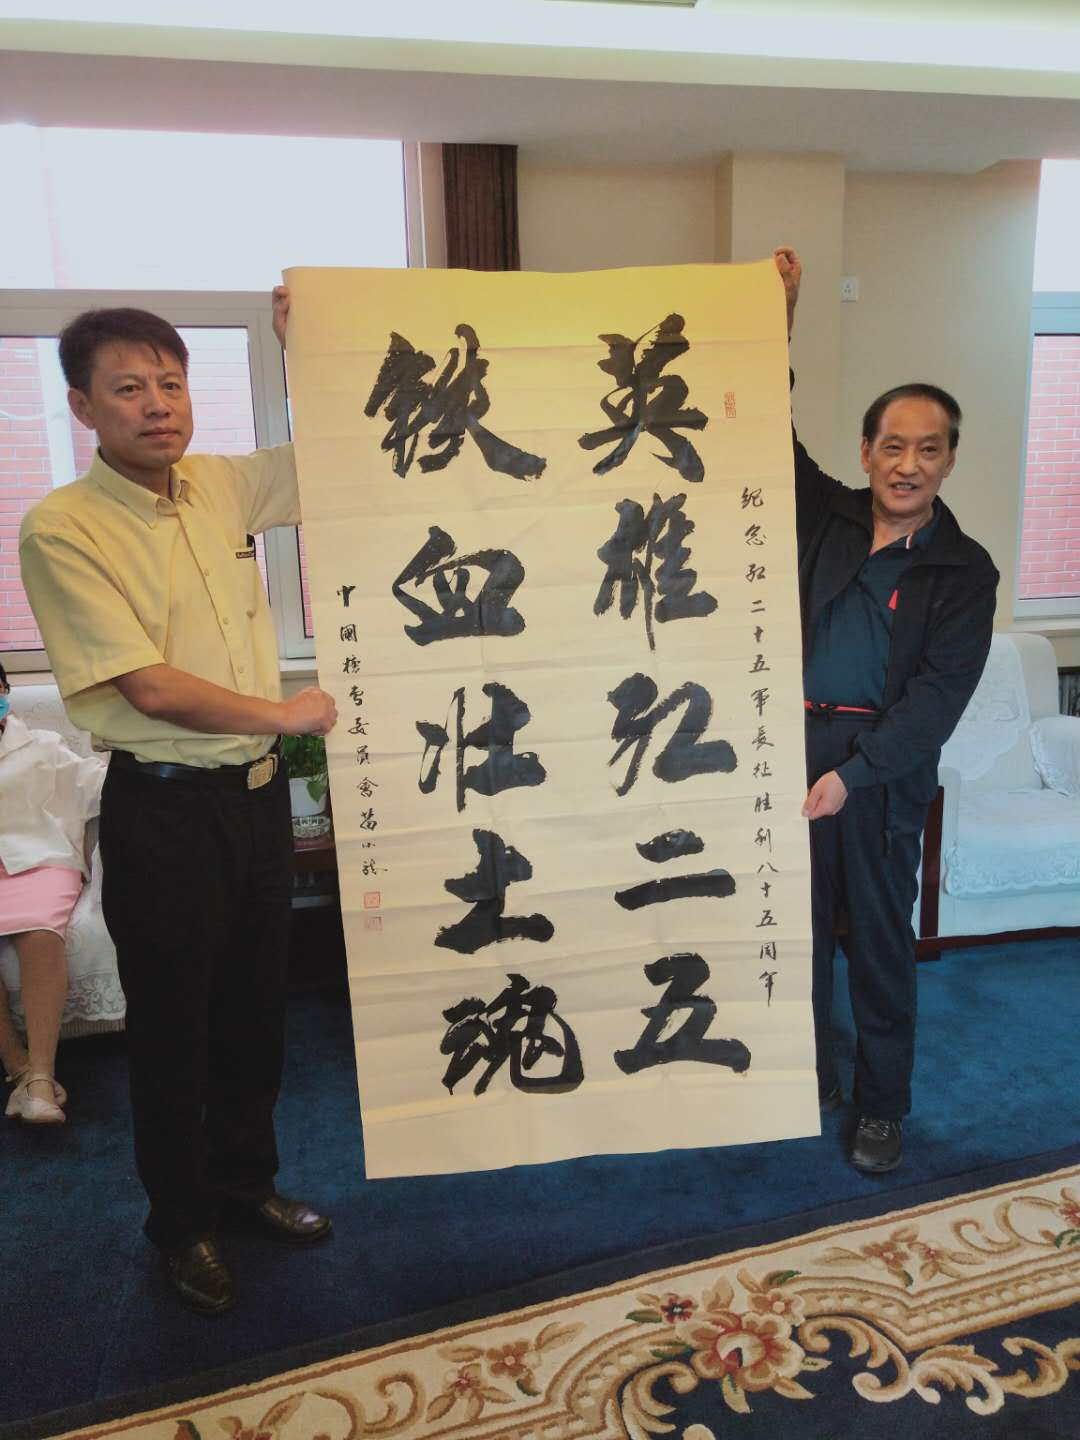 纪念红二十五军长征胜利八十五周年
英雄红二五
铁血壮士魂
中國榜書委員會苗小龙